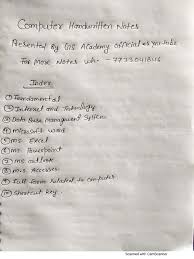 Computer Handwritten Notes
Presented by GS Academy official es youtube
For More Notes wh: -
Index
① Fundamental
② Internet and Technology
③ Data Base Management System
④ microsoft word
⑤ ms. Excel
⑥ ms. Powerpoint
⑦ ms. outlook
⑧ ms. Access
⑨ Full Form Related to computer
⑩ Shortcut key.
Scanned with CamScanner